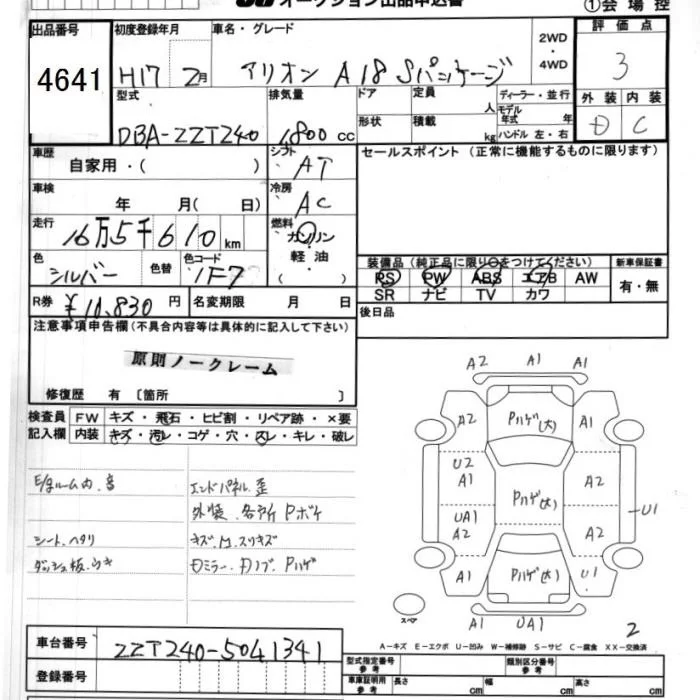 オークション出品申込書 ①会場控
出品番号 初度登録年月 車名・グレード 2WD・4WD 評価点
4641 H17 2月 アリオン A18 Sパッケージ 3
型式 排気量 ドア 定員 人 ディーラー・並行 外装 内装
DBA-ZZT240 1,800 cc 形状 積載 kg モデル年式 年 ハンドル 左・右 D C
車歴 シフト セールスポイント (正常に機能するものに限ります)
自家用・( ) AT
車検 冷房
年 月( 日) AC
走行 燃料
16万5千610 km ガソリン
軽油・
( )
色 色替 色コード 装備品 (純正品に限り○をつけてください) 新車保証書
シルバー 1F7 PS PW ABS エアB AW 有・無
SR ナビ TV カワ
R券 ¥10,830 円 名変期限 月 日 後日品
注意事項申告欄(不具合内容等は具体的に記入して下さい)
原則ノークレーム
修復歴 有 〔箇所 〕
検査員 FW キズ・飛石・ヒビ割・リペア跡・×要
記入欄 内装 キズ・汚レ・コゲ・穴・スレ・キレ・破レ
E/gルーム内.音 エンドパネル.歪
外装.各所 Pボケ
シート.ヘタリ キズ.M.スリキズ
ダッシュ板.ウキ Dミラー.Dノブ.Pハゲ
A2 A1 A1
A2 Pハゲ(大) A1
U2
A1 A2
Pハゲ(大) U1
UA1 A2
A1 Pハゲ(大) U1
スペア A1 UA1 2
A-キズ E-エクボ U-凹み W-補修跡 S-サビ C-腐食 XX-交換済
車台番号 ZZT240-5041341
登録番号
型式指定番号 参考 類別区分番号 参考
車庫証明用 参考 長さ cm 幅 cm 高さ cm